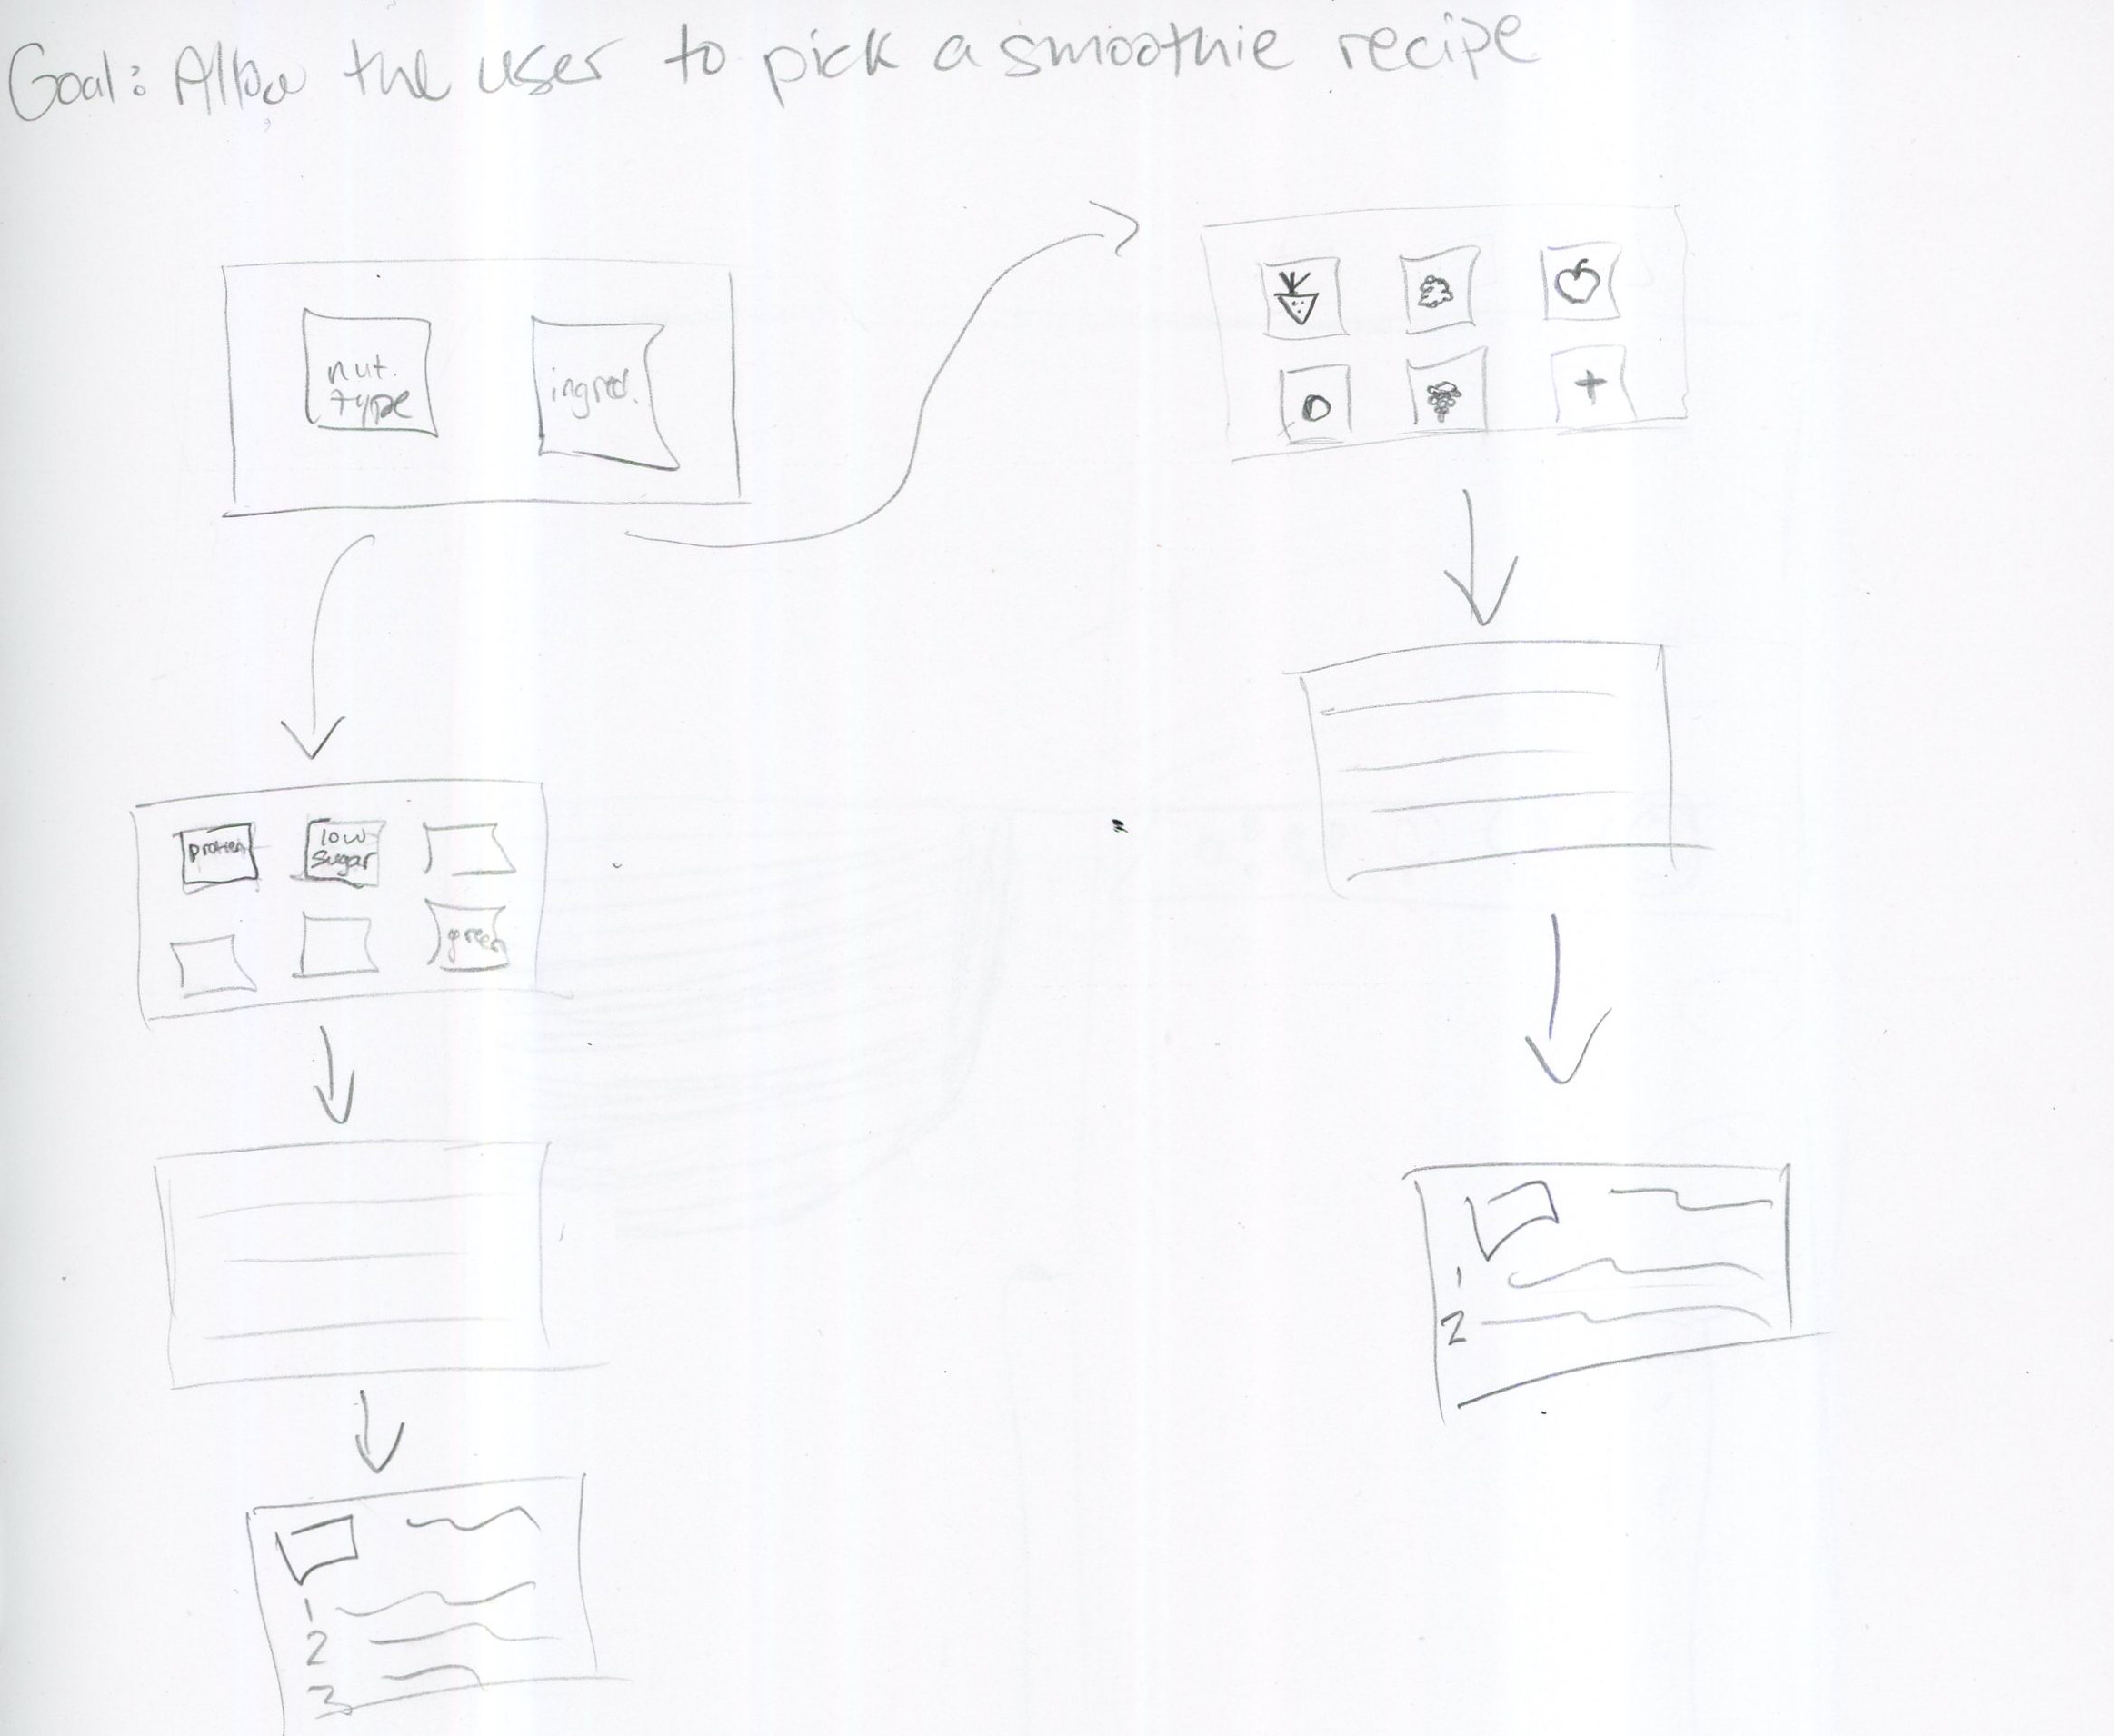 Goal: Allow the user to pick a smoothie recipe
nut.
type
ingred.
+
low
sugar
green
1
2
1
2
3